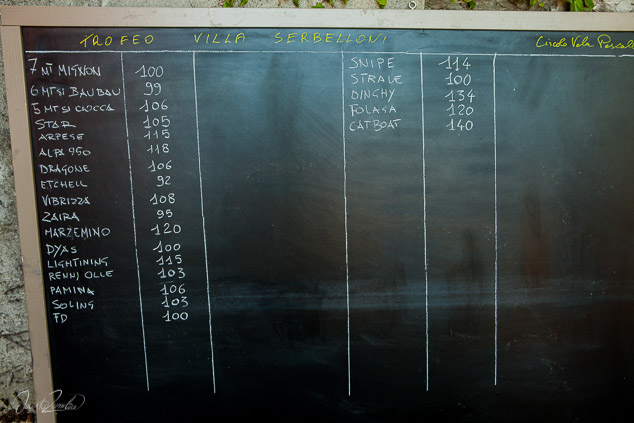 TROFEO VILLA SERBELLONI
Circolo Vela
7 MT MIGNON 100
6 MT SI BAU BAU 99
5 MT SI CIOCCA 106
STAR 105
ARPEGE 115
ALPA 950 118
DRAGONE 106
ETCHELL 92
VIBRIZZA 108
ZAIRA 95
MARZEMINO 120
DYAS 100
LIGHTINING 115
103
PAMINA 106
SOLING 103
FD 100
SNIPE 114
STRALE 100
DINGHY 134
FOLAGA 120
CATBOAT 140